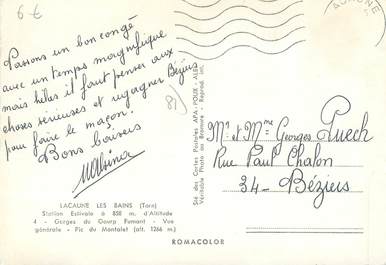 6 €
LACAUNE
Passons un bon congé
avec un temps magnifique
mais hélas il faut penser aux
choses sérieuses et regagner Béziers
pour faire le maçon.
Bons baisers
81/
LACAUNE LES BAINS (Tarn)
Station Estivale à 850 m. d'Altitude
4 - Gorges du Gourp Fumant - Vue
générale - Pic du Montalet (alt. 1266 m.)
Sté des Cartes Postales APA-POUX - ALBI
Véritable Photo au Bromure - Reprod. int.
Mr. et Mme Georges Puech
Rue Paul Chalon
34 - Béziers
ROMACOLOR